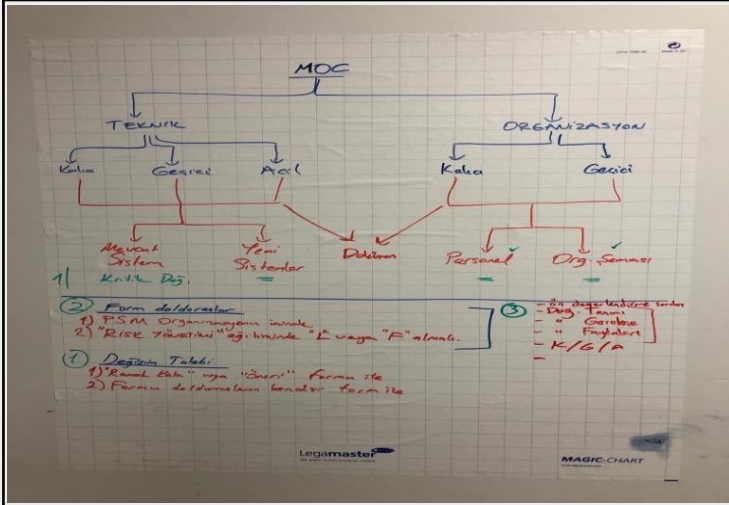 MOC
TEKNIK ORGANİZASYON
Kalıcı Geçici Acil Kalıcı Geçici
Mevcut Sistem Yeni Sistemler Doküman Personel ✓ Org. Şeması ✓
1) Kritik Değ.
② Form dolduranlar
1) PSM Organizasyonu içinde
2) "Risk Yönetimi" eğitiminde "L" veya "F" almalı.
① Değişim Talebi
1) "Ramak Kala" veya "öneri" formu ile
2) Formu dolduranların kendisi form ile
③ - ön değerlendirme
- Değ. Tanımı
- " Gerekçe
- " Faydaları
- K/G/A
-
Legamaster
MAGIC-CHART